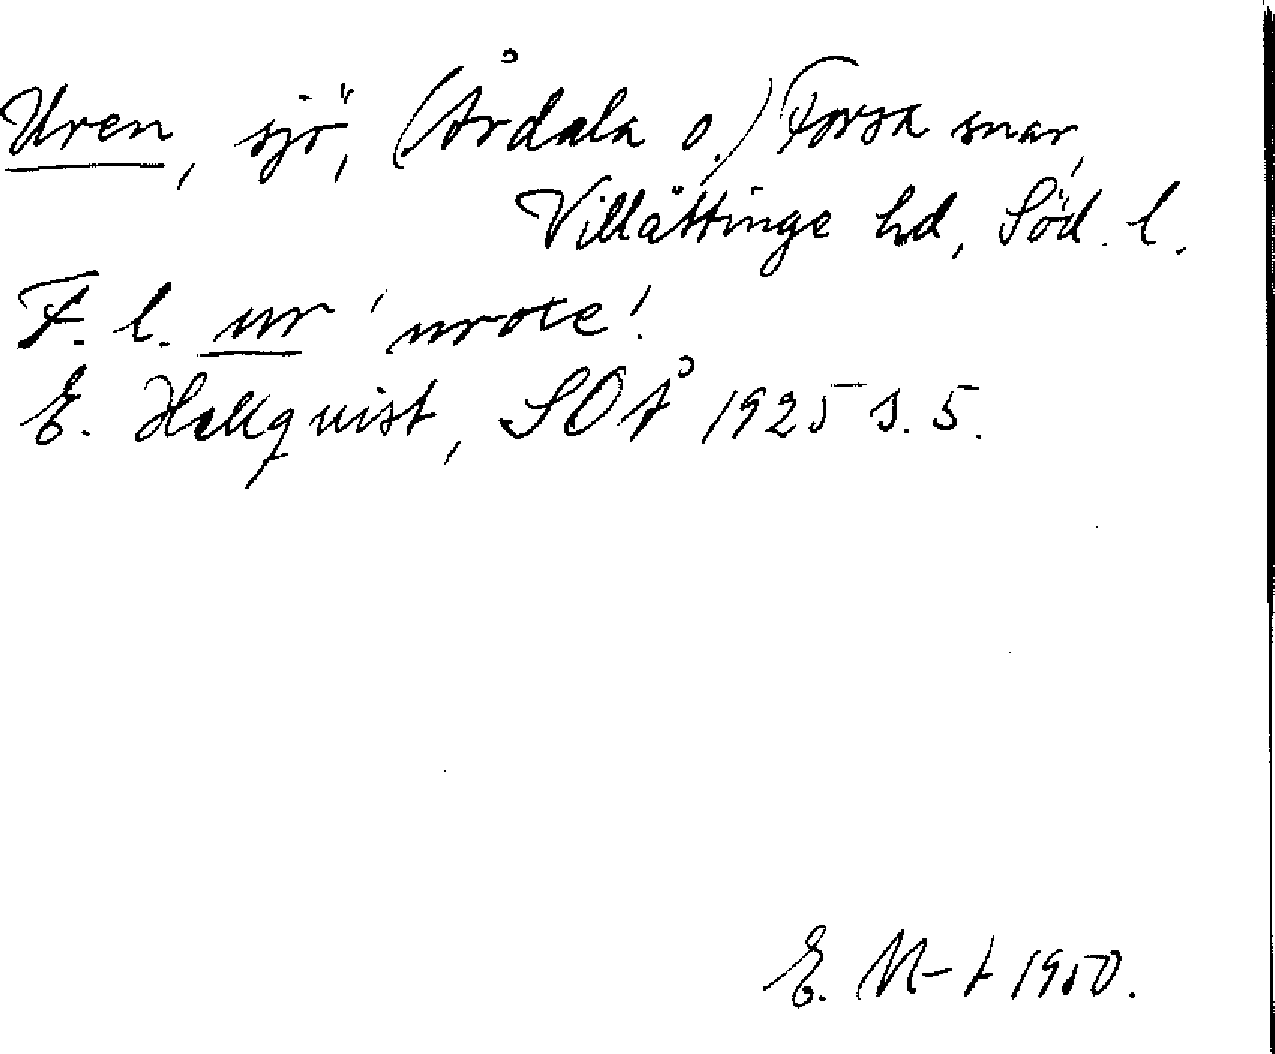 Uren, sjö, (Årdala o.) Forsa snar,
Villåttinge hd, Söd. l.
F. l. ur 'uroxe'.
E. Hellquist, SOÅ 1925 s. 5.
E. N-t 1950.